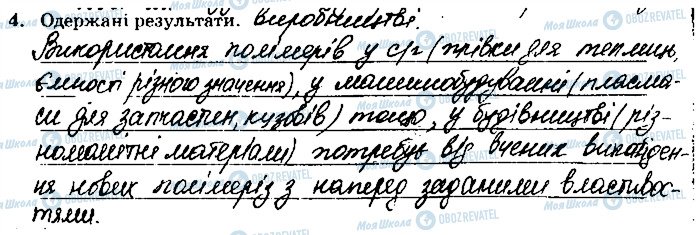 4. Одержані результати. виробництві.
Використання полімерів у с/г (плівки для теплиць,
ємності різного значення), у машинобудуванні (пласма-
си для запчастин, кузовів) тощо, у будівництві (різ-
номанітні матеріали) потребує від вчених винайден-
ня нових полімерів з наперед заданими властивос-
тями.